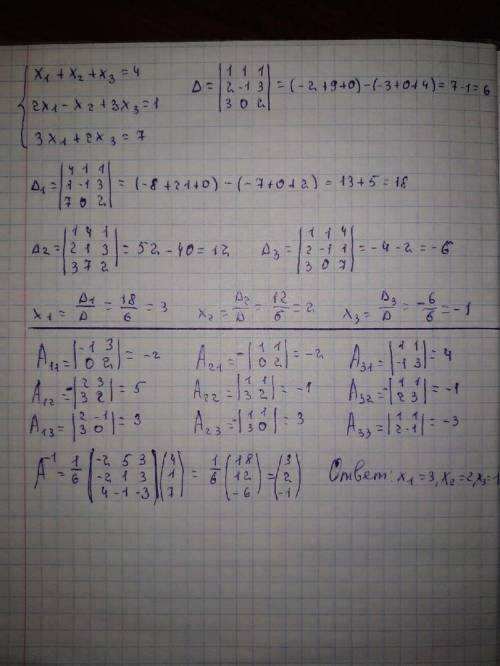 { x₁ + x₂ + x₃ = 4
2x₁ - x₂ + 3x₃ = 1
3x₁ + 2x₃ = 7
Δ = |1 1 1; 2 -1 3; 3 0 2| = (-2+9+0) - (-3+0+4) = 7-1 = 6
Δ₁ = |4 1 1; 1 -1 3; 7 0 2| = (-8+21+0) - (-7+0+2) = 13+5 = 18
Δ₂ = |1 4 1; 2 1 3; 3 7 2| = 52 - 40 = 12 Δ₃ = |1 1 4; 2 -1 1; 3 0 7| = -4 - 2 = -6
x₁ = Δ₁/Δ = 18/6 = 3 x₂ = Δ₂/Δ = 12/6 = 2 x₃ = Δ₃/Δ = -6/6 = -1
A₁₁ = |-1 3; 0 2| = -2 A₂₁ = -|1 1; 0 2| = -2 A₃₁ = |1 1; -1 3| = 4
A₁₂ = -|2 3; 3 2| = 5 A₂₂ = |1 1; 3 2| = -1 A₃₂ = -|1 1; 2 3| = -1
A₁₃ = |2 -1; 3 0| = 3 A₂₃ = -|1 1; 3 0| = 3 A₃₃ = |1 1; 2 -1| = -3
A⁻¹ = 1/6 (-2 5 3; -2 1 3; 4 -1 -3) (4; 1; 7) = 1/6 (18; 12; -6) = (3; 2; -1) Ответ: x₁ = 3, x₂ = 2, x₃ = -1